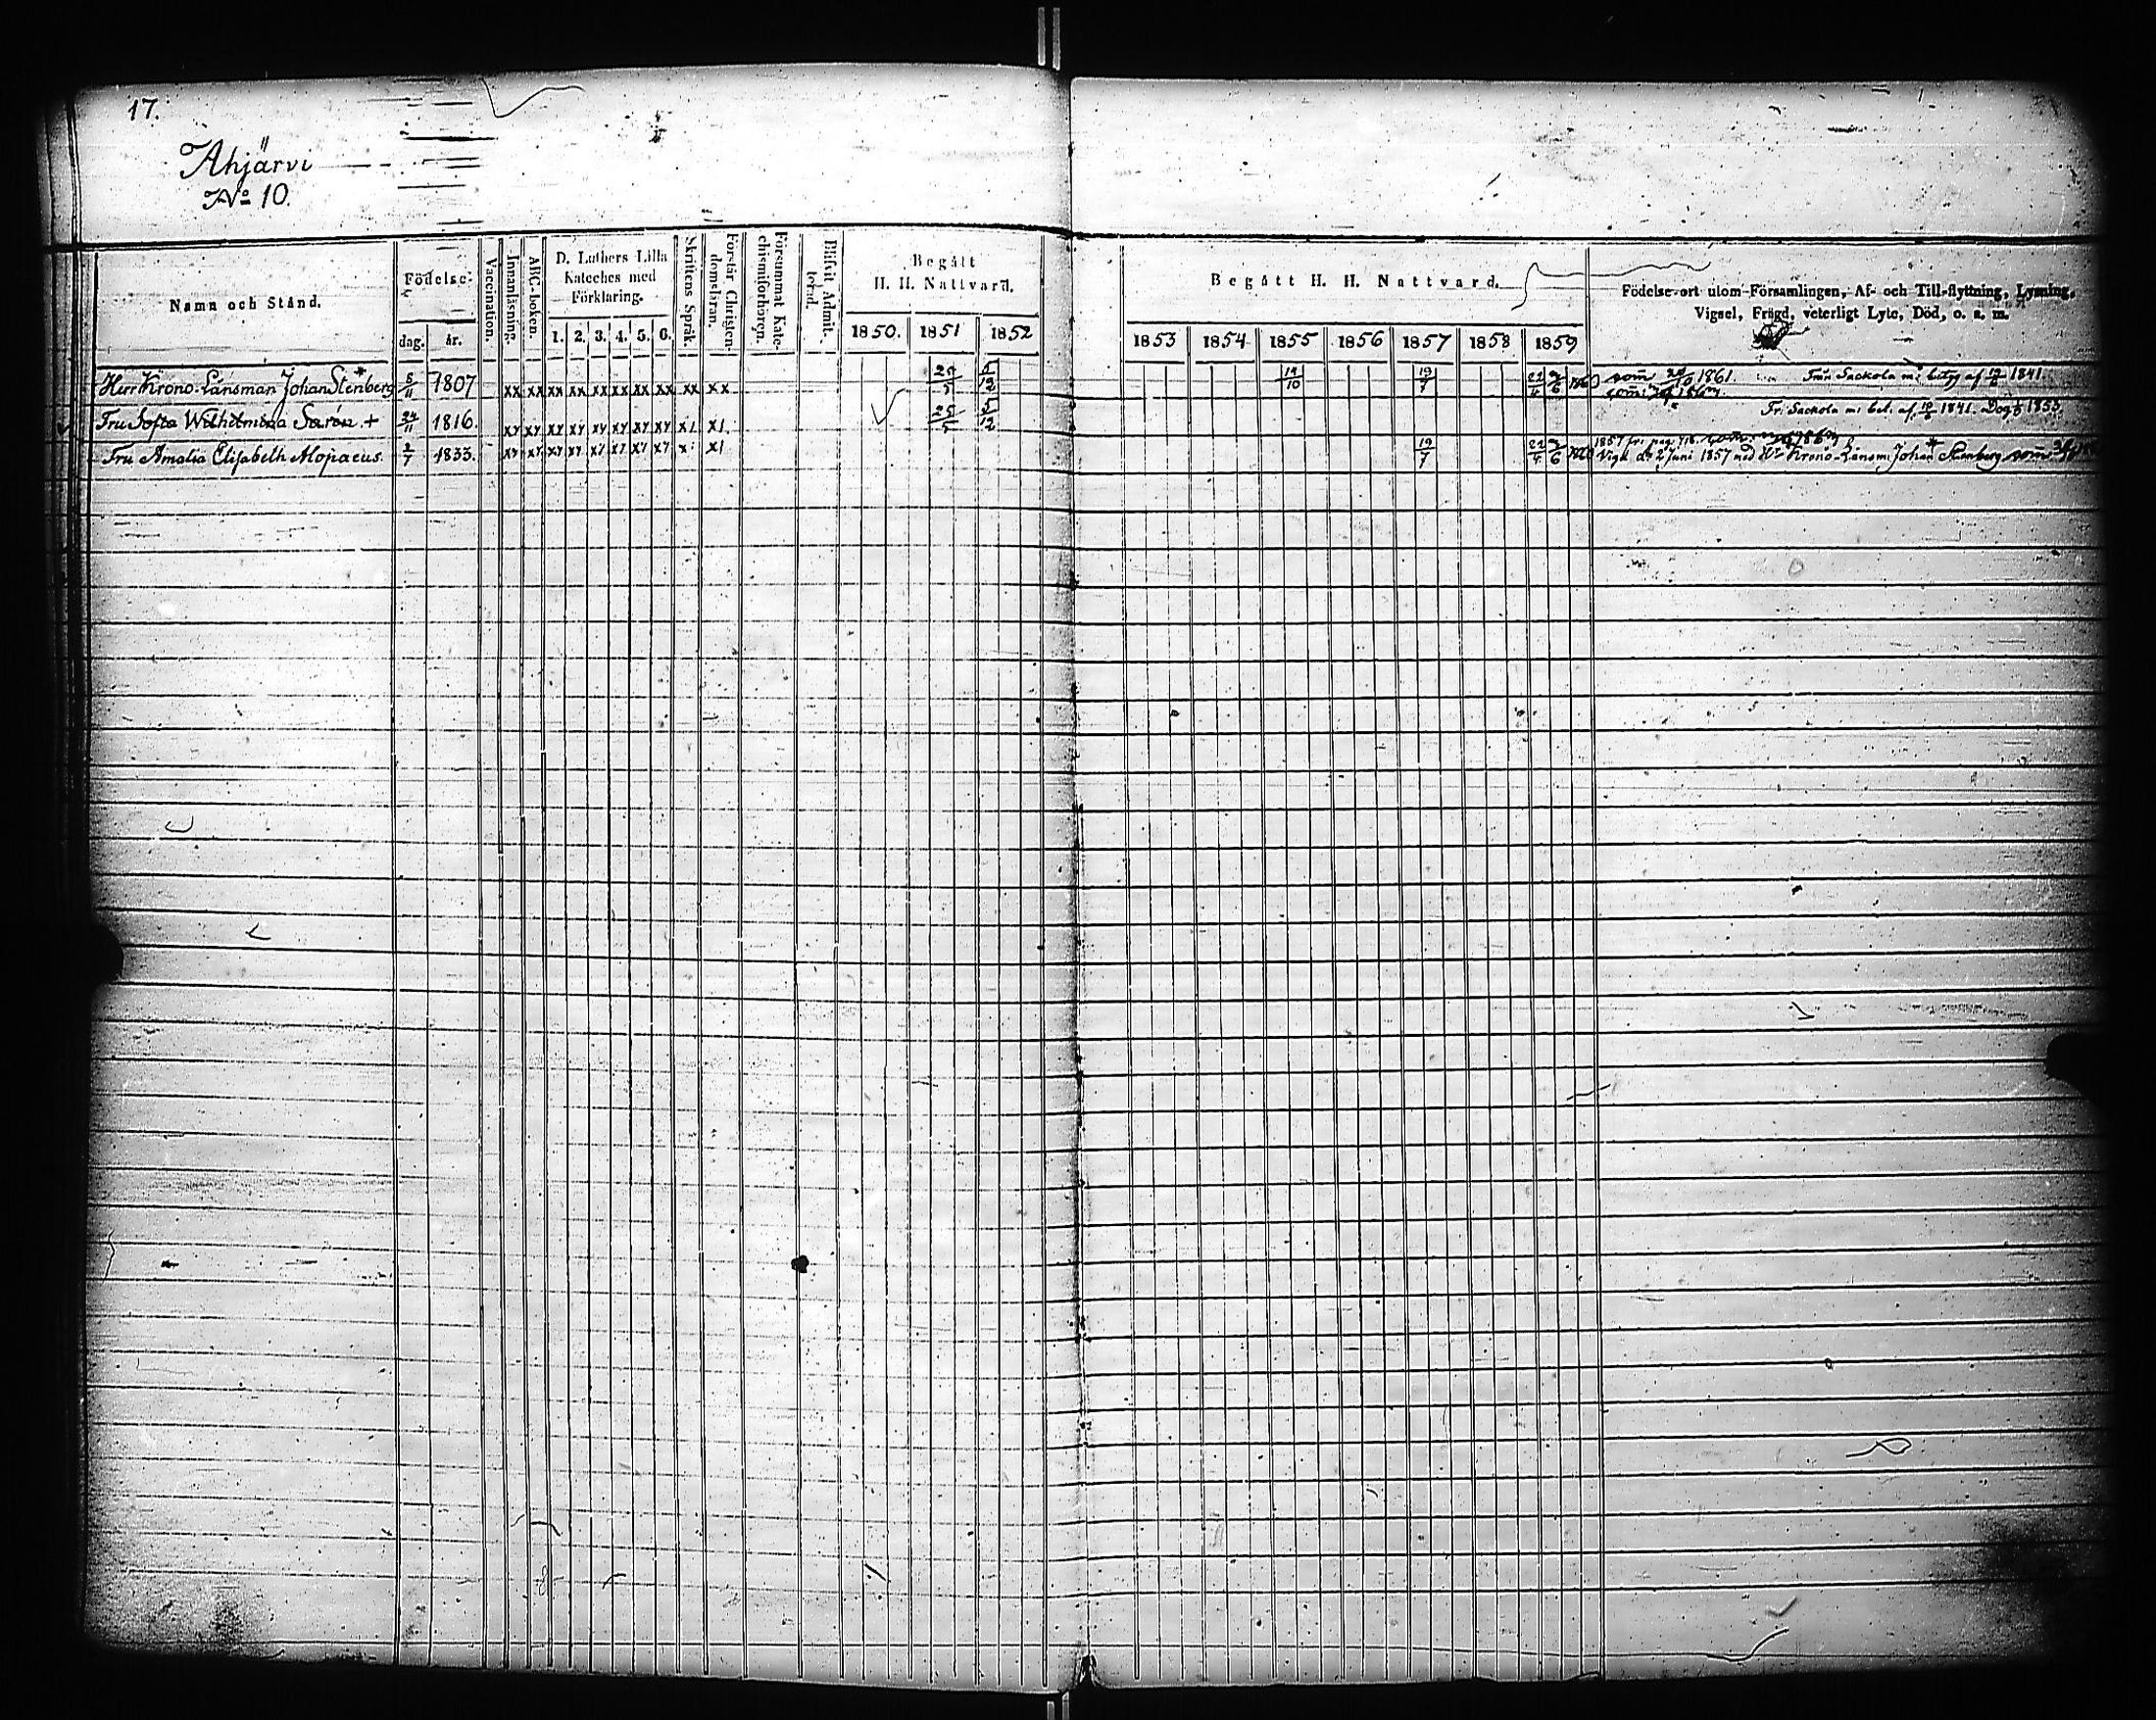 17.
Ahjärvi
No 10.
Namn och Stånd.
Födelse-
dag. år.
Vaccination.
Innanläsning.
ABC-boken.
D. Luthers Lilla
Kateches med
Förklaring.
1. 2. 3. 4. 5. 6.
Skriftens Språk.
Förstår Christen-
domsläran.
Försummat Kate-
chismiförhören.
Blifvit Admit-
terad.
Begått
H. H. Nattvard.
1850. 1851 1852
Begått H. H. Nattvard.
1853 1854 1855 1856 1857 1858 1859
Födelse-ort utom Församlingen, Af- och Till-flyttning, Lysning,
Vigsel, Frägd, veterligt Lyte, Död, o. s. m.
Herr Krono-Länsman Johan Stenberg 5/11 1807 xx xx xx xx xx xx xx xx xx xx 25/5 5/12 14/10 19/7 22/4 2/6 1860 1861. Från Sackola m: betyg af 19/6 1841.
Fru Sofia Wilhelmina Sarén + 24/11 1816. xy xy xy xy xy xy xy xy x1 x1. 25/5 5/12 Fr: Sackola m: bet. af 19/6 1841. Dog 1853.
Fru Amalia Elisabeth Alopaeus. 2/7 1833. x7 x7 x7 x7 x7 x7 x7 x7 x: x1 19/7 22/4 2/6 1857 fr: pag. 
Vigd. d. 2 Juni 1857 med Hr Krono-Länsm: Johan Stenberg